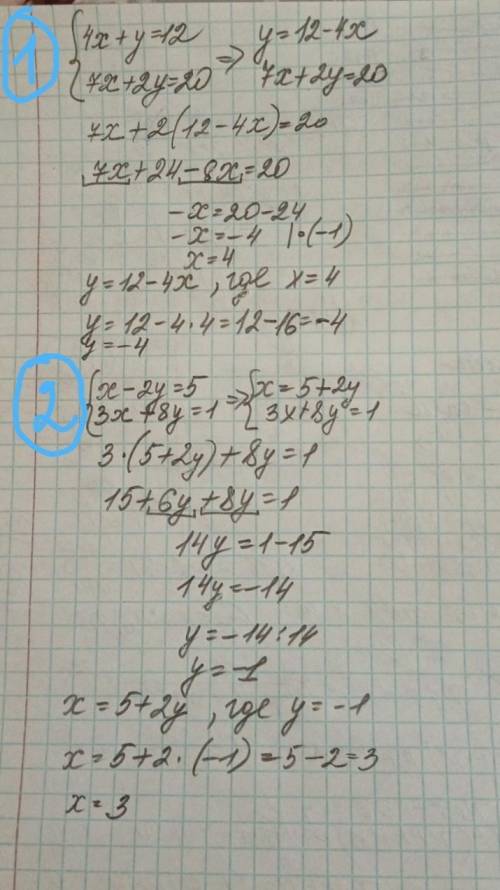 1 {4x+y=12 => y=12-4x
{7x+2y=20 7x+2y=20
7x+2(12-4x)=20
7x+24-8x=20
-x=20-24
-x=-4 |·(-1)
x=4
y=12-4x, где x=4
y=12-4·4=12-16=-4
y=-4
2 {x-2y=5 => {x=5+2y
{3x+8y=1 {3x+8y=1
3·(5+2y)+8y=1
15+6y+8y=1
14y=1-15
14y=-14
y=-14:14
y=-1
x=5+2y, где y=-1
x=5+2·(-1)=5-2=3
x=3